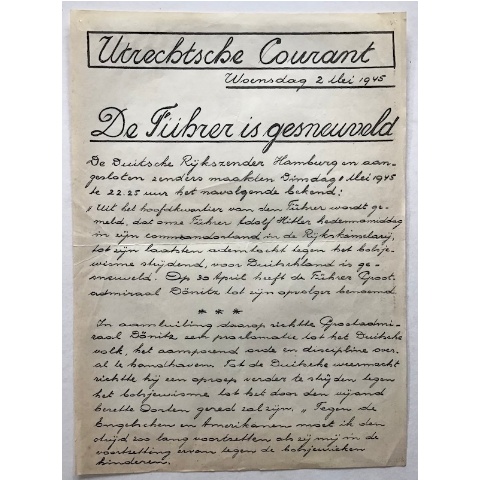 Utrechtsche Courant
Woensdag 2 Mei 1945
De Führer is gesneuveld
De Duitsche Rijkszender Hamburg en aan-
gesloten zenders maakten Dinsdag 1 Mei 1945
te 22.25 uur het navolgende bekend:
„Uit het hoofdkwartier van den Führer wordt ge-
meld, dat onze Führer Adolf Hitler hedennamiddag
in zijn commandostand in de Rijkskanselarij,
tot zijn laatsten ademtocht tegen het bolsje-
wisme strijdend, voor Duitschland is ge-
sneuveld. Op 30 April heeft de Führer Groot-
admiraal Dönitz tot zijn opvolger benoemd
* * *
In aansluiting daarop richtte Grootadmi-
raal Dönitz een proclamatie tot het Duitsche
volk, het aansporend orde en discipline over-
al te handhaven. Tot de Duitsche weermacht
richtte hij een oproep verder te strijden tegen
het bolsjewisme tot het door den vijand
bezette Oosten gered zal zijn. „Tegen de
Engelschen en Amerikanen moet ik den
strijd zoo lang voortzetten als zij mij in de
voortzetting ervan tegen de bolsjewieken
hinderen.